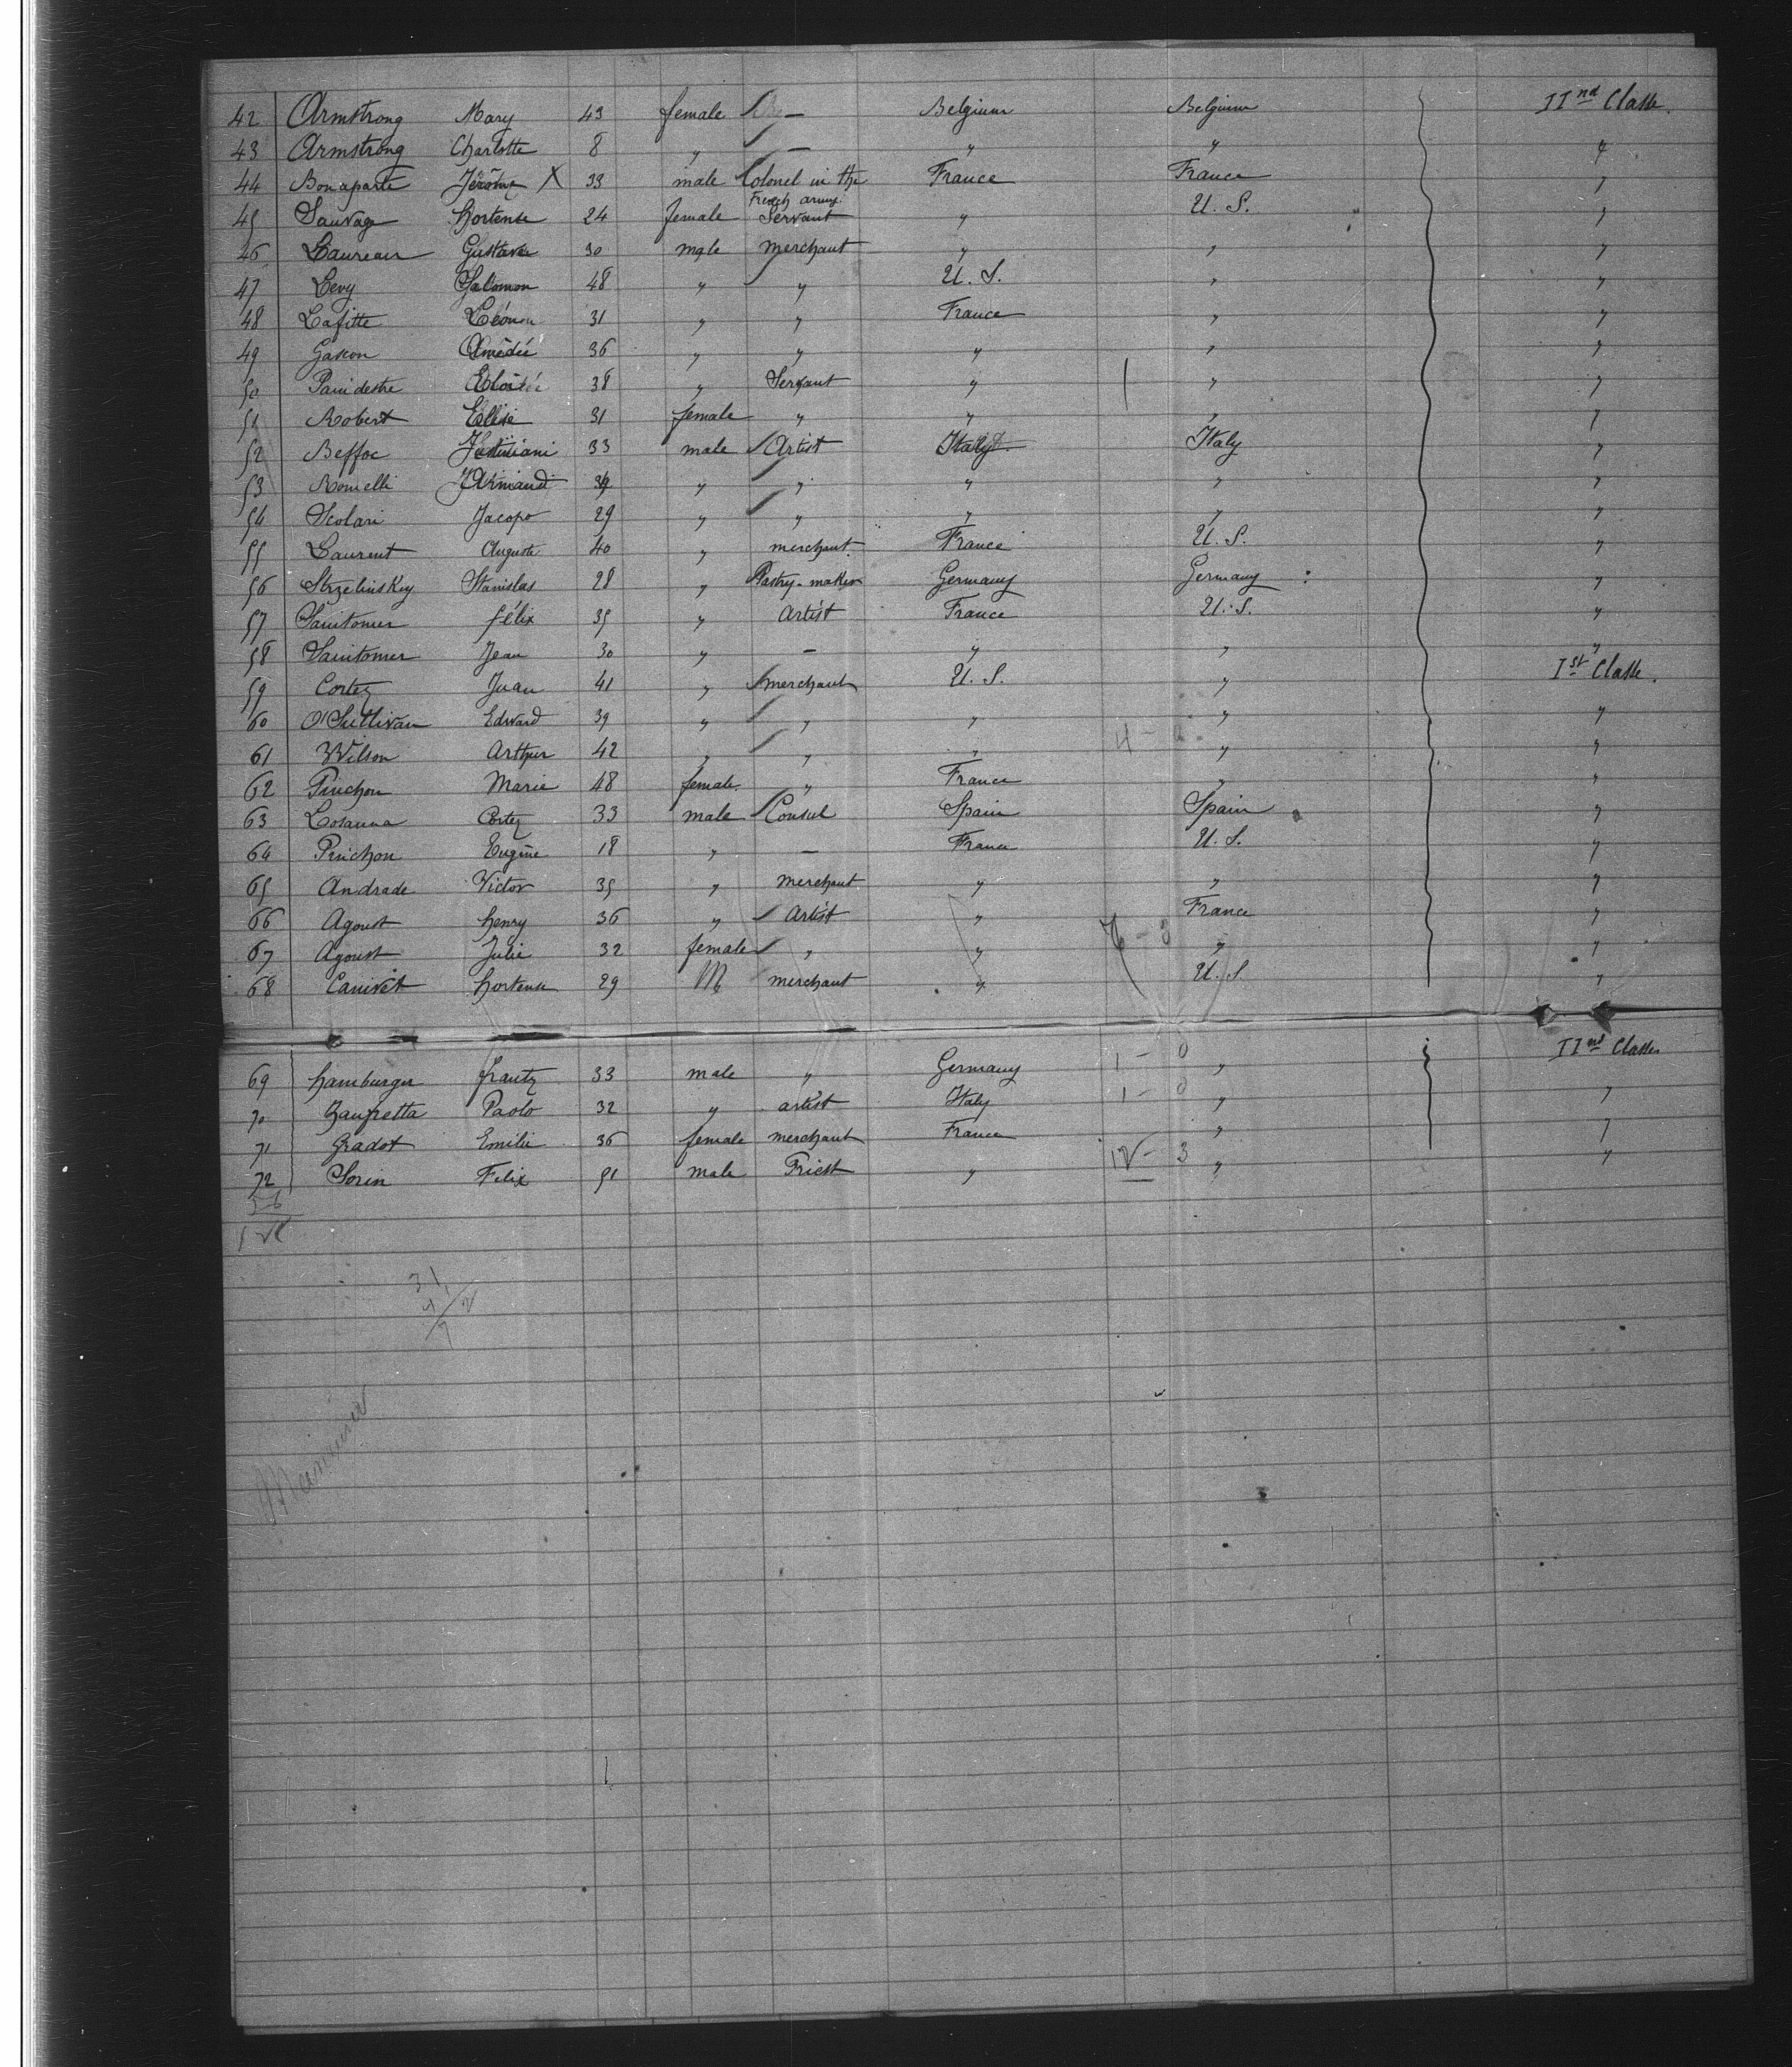 42 Armstrong Mary 43 female — Belgium Belgium IInd Classe.
43 Armstrong Charlotte 8 " — " " "
44 Bonaparte Jérôme X 33 male Colonel in the French army. France France "
45 Sauvage Hortense 24 female Servant " U. S. "
46 Laureau Gustave 30 male merchant " " "
47 Levy Salomon 48 " " U. S. " "
48 Lafitte Léon 31 " " France " "
49 Gascon Amédée 36 " " " " "
50 38 " Servant " " "
51 Robert Elise 31 female " " " "
52 Beffoc Justiniani 33 male Artist Italy Italy "
53 Romelli Armand " " " " "
54 Scolari Jacopo 29 " " " " "
55 Laurent Auguste 40 " merchant. France U. S. "
56 Strzelinskey Stanislas 28 " Pastry-maker Germany Germany "
57 Saintomer félix 35 " Artist France U. S. "
58 Saintomer Jean 30 " — " " "
59 Cortez Juan 41 " merchant U. S. " Ist Classe.
60 O'Sullivan Edward 39 " " " " "
61 Wilson Arthur 42 " " " " "
62 Pinchon Marie 48 female. " France " "
63 Losanna Cortez 33 male Consul Spain Spain "
64 Pinchon Eugène 18 " — France U. S. "
65 Andrade Victor 35 " merchant " " "
66 Agoust henry 36 " Artist " France "
67 Agoust Julie 32 female " " " "
68 Canivet hortense 29 M merchant " U. S "
69 hamburger frantz 33 male " Germany 1 - 0 " IInd Classe
70 Zanfretta Paolo 32 " artist Italy 1 - 0 " "
71 Gradot Emilie 36 female merchant France " "
72 Sorin Felix 51 male Priest " 12 - 3 " "
56
128
31
41
72